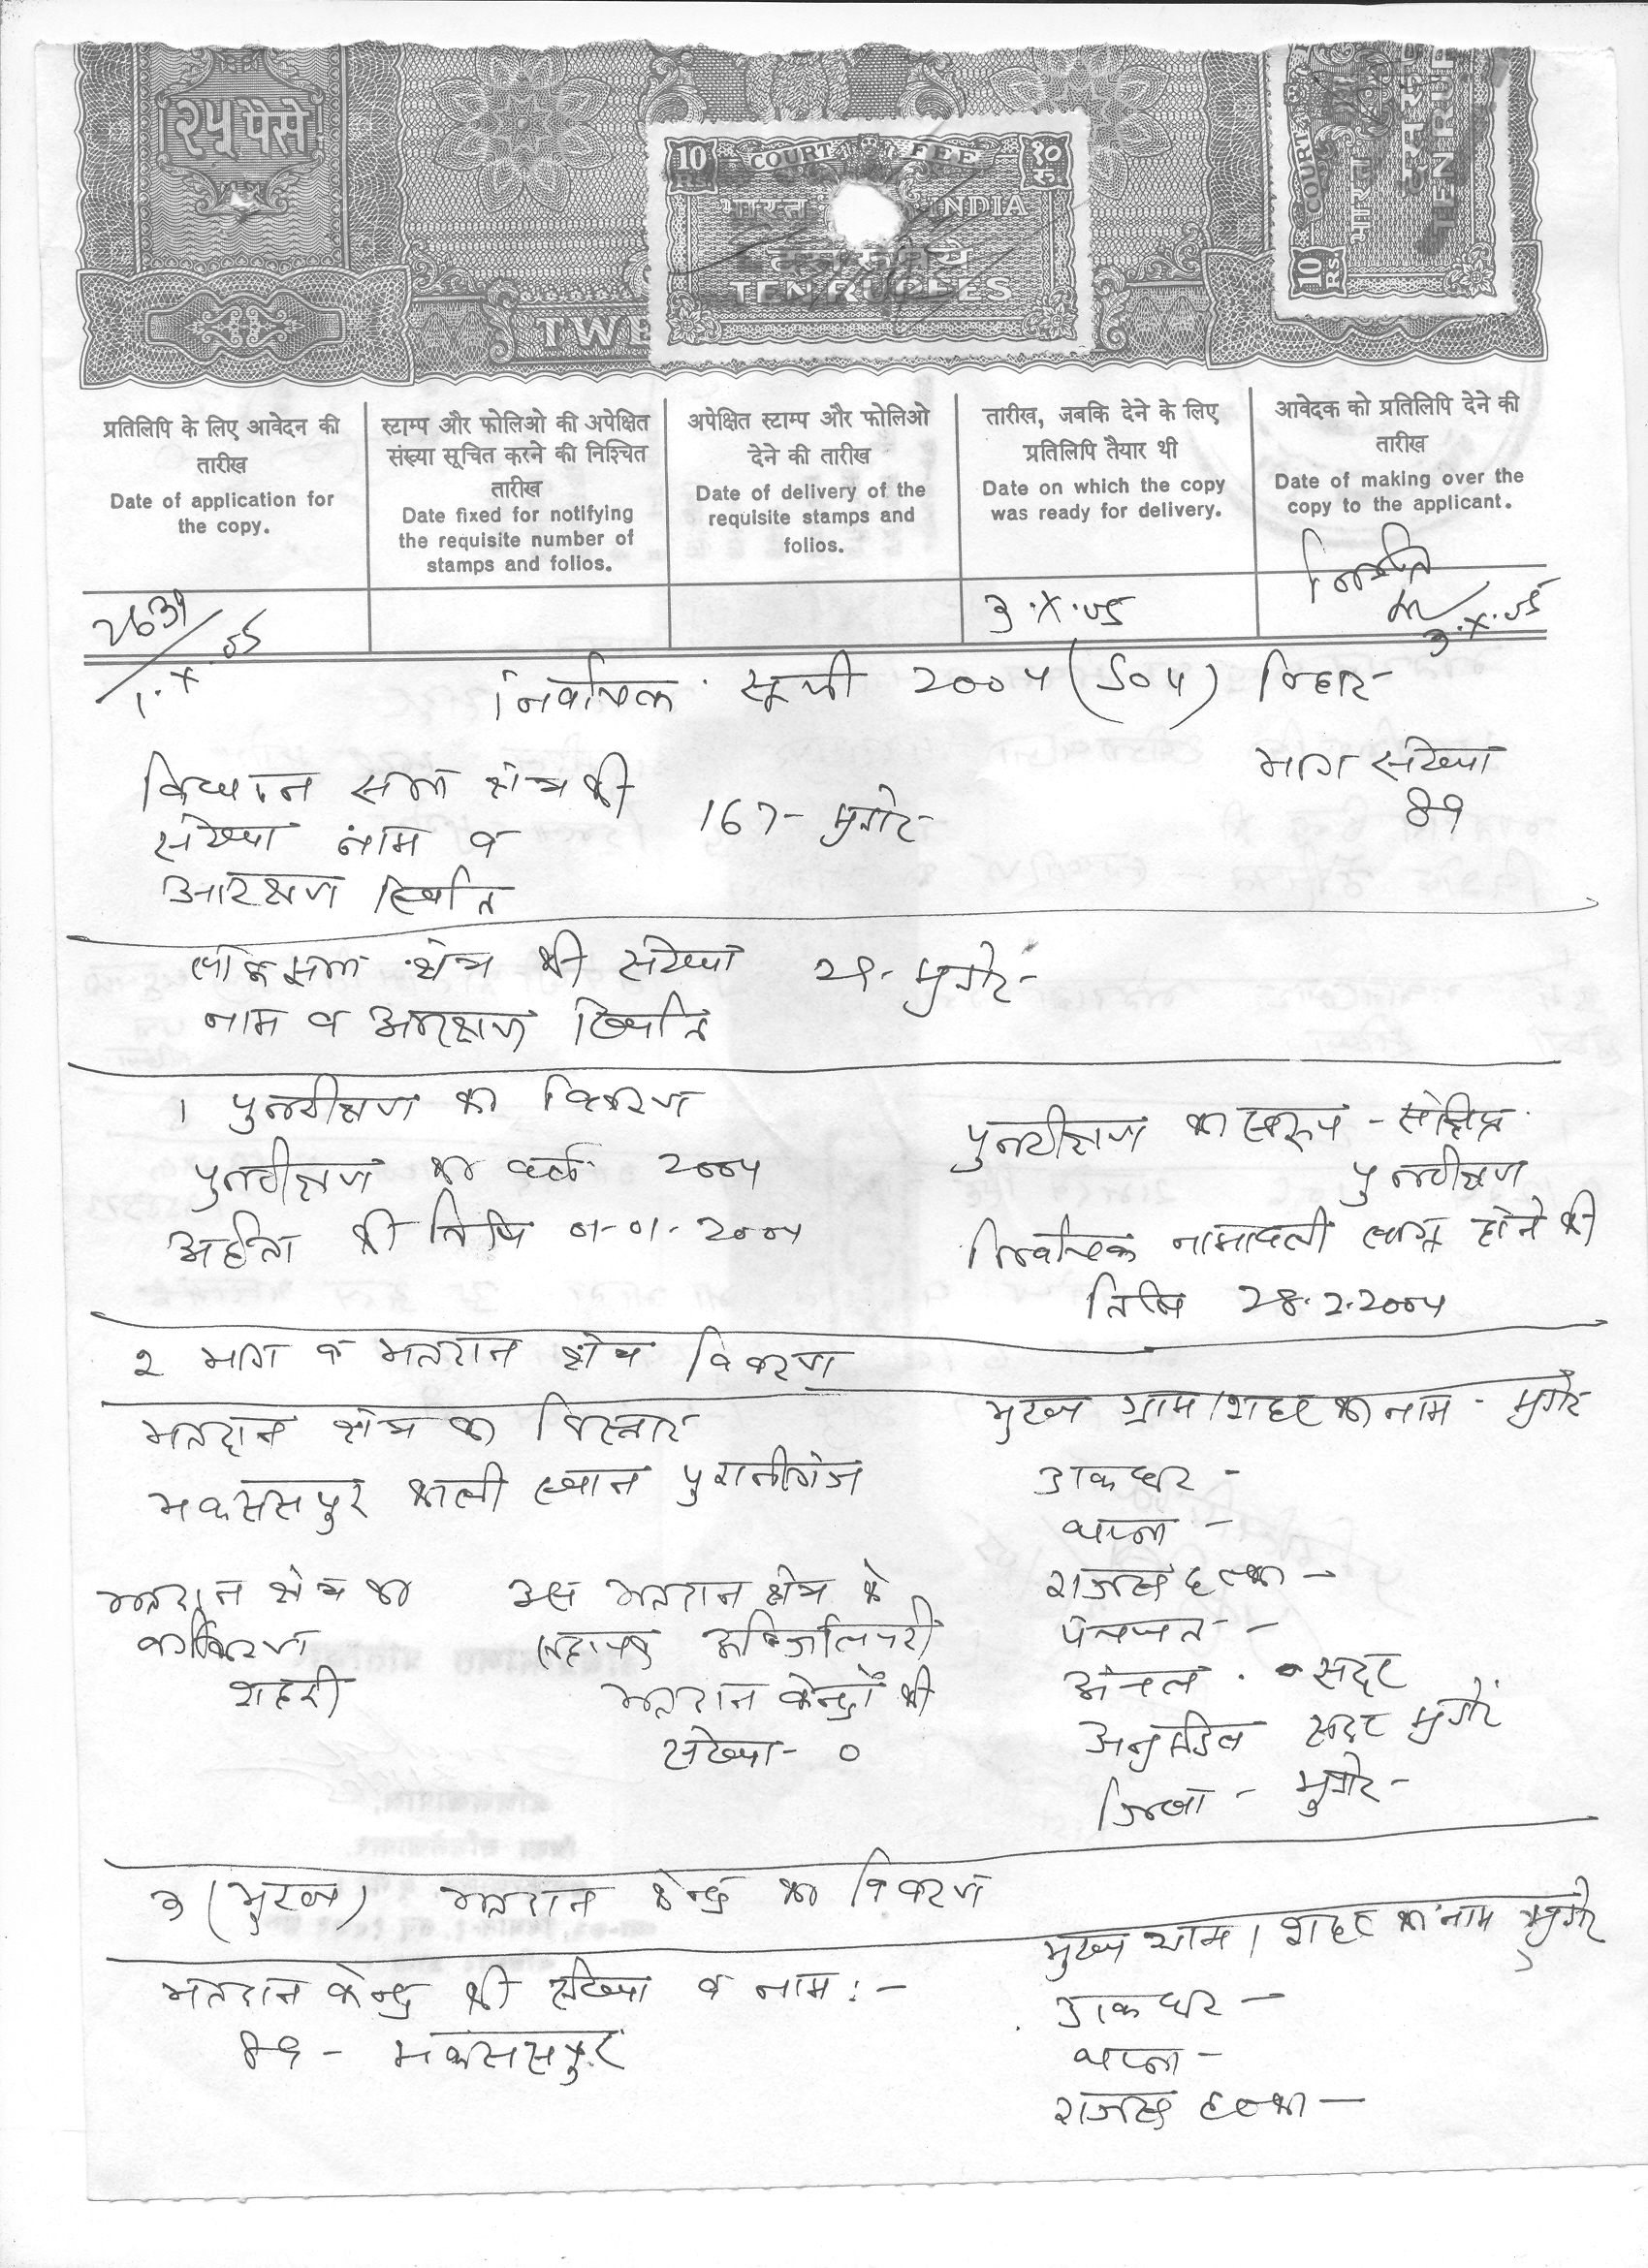 २५ पैसे
10 RS. COURT FEE १० रु.
भारत INDIA
दस रुपये
TEN RUPEES
TWE
COURT
भारत
10 RS.
TEN RUP
प्रतिलिपि के लिए आवेदन की
तारीख
Date of application for
the copy.
स्टाम्प और फोलिओ की अपेक्षित
संख्या सूचित करने की निश्चित
तारीख
Date fixed for notifying
the requisite number of
stamps and folios.
अपेक्षित स्टाम्प और फोलिओ
देने की तारीख
Date of delivery of the
requisite stamps and
folios.
तारीख, जबकि देने के लिए
प्रतिलिपि तैयार थी
Date on which the copy
was ready for delivery.
आवेदक को प्रतिलिपि देने की
तारीख
Date of making over the
copy to the applicant.
3.X.05
3.X.05
निर्वाचक सूची 2005 (S04) बिहार
विधान सभा क्षेत्र की
संख्या नाम व
आरक्षण स्थिति
167- मुंगेर-
भाग संख्या
89
लोकसभा क्षेत्र की संख्या
नाम व आरक्षण स्थिति
29- मुंगेर-
1 पुनरीक्षण का विवरण
पुनरीक्षण का वर्ष 2005
अर्हता की तिथि 01-01-2005
पुनरीक्षण का स्वरूप - संक्षिप्त
पुनरीक्षण
निर्वाचक नामावली लागू होने की
तिथि 28.2.2005
2 भाग व मतदान क्षेत्र विवरण
मतदान क्षेत्र का विस्तार
मकससपुर काली स्थान पुरानीगंज
मतदान क्षेत्र का
वर्गीकरण
शहरी
इस मतदान क्षेत्र के
सहायक ऑक्जिलियरी
मतदान केन्द्रों की
संख्या- 0
मुख्य ग्राम/शहर का नाम - मुंगेर
डाकघर -
थाना -
राजस्व हल्का -
पंचायत -
अंचल - सदर
अनुमंडल सदर मुंगेर
जिला - मुंगेर-
3 (मुख्य) मतदान केन्द्र का विवरण
मतदान केन्द्र की संख्या व नाम :-
89 - मकससपुर
मुख्य ग्राम / शहर का नाम मुंगेर
डाकघर -
थाना -
राजस्व हल्का -